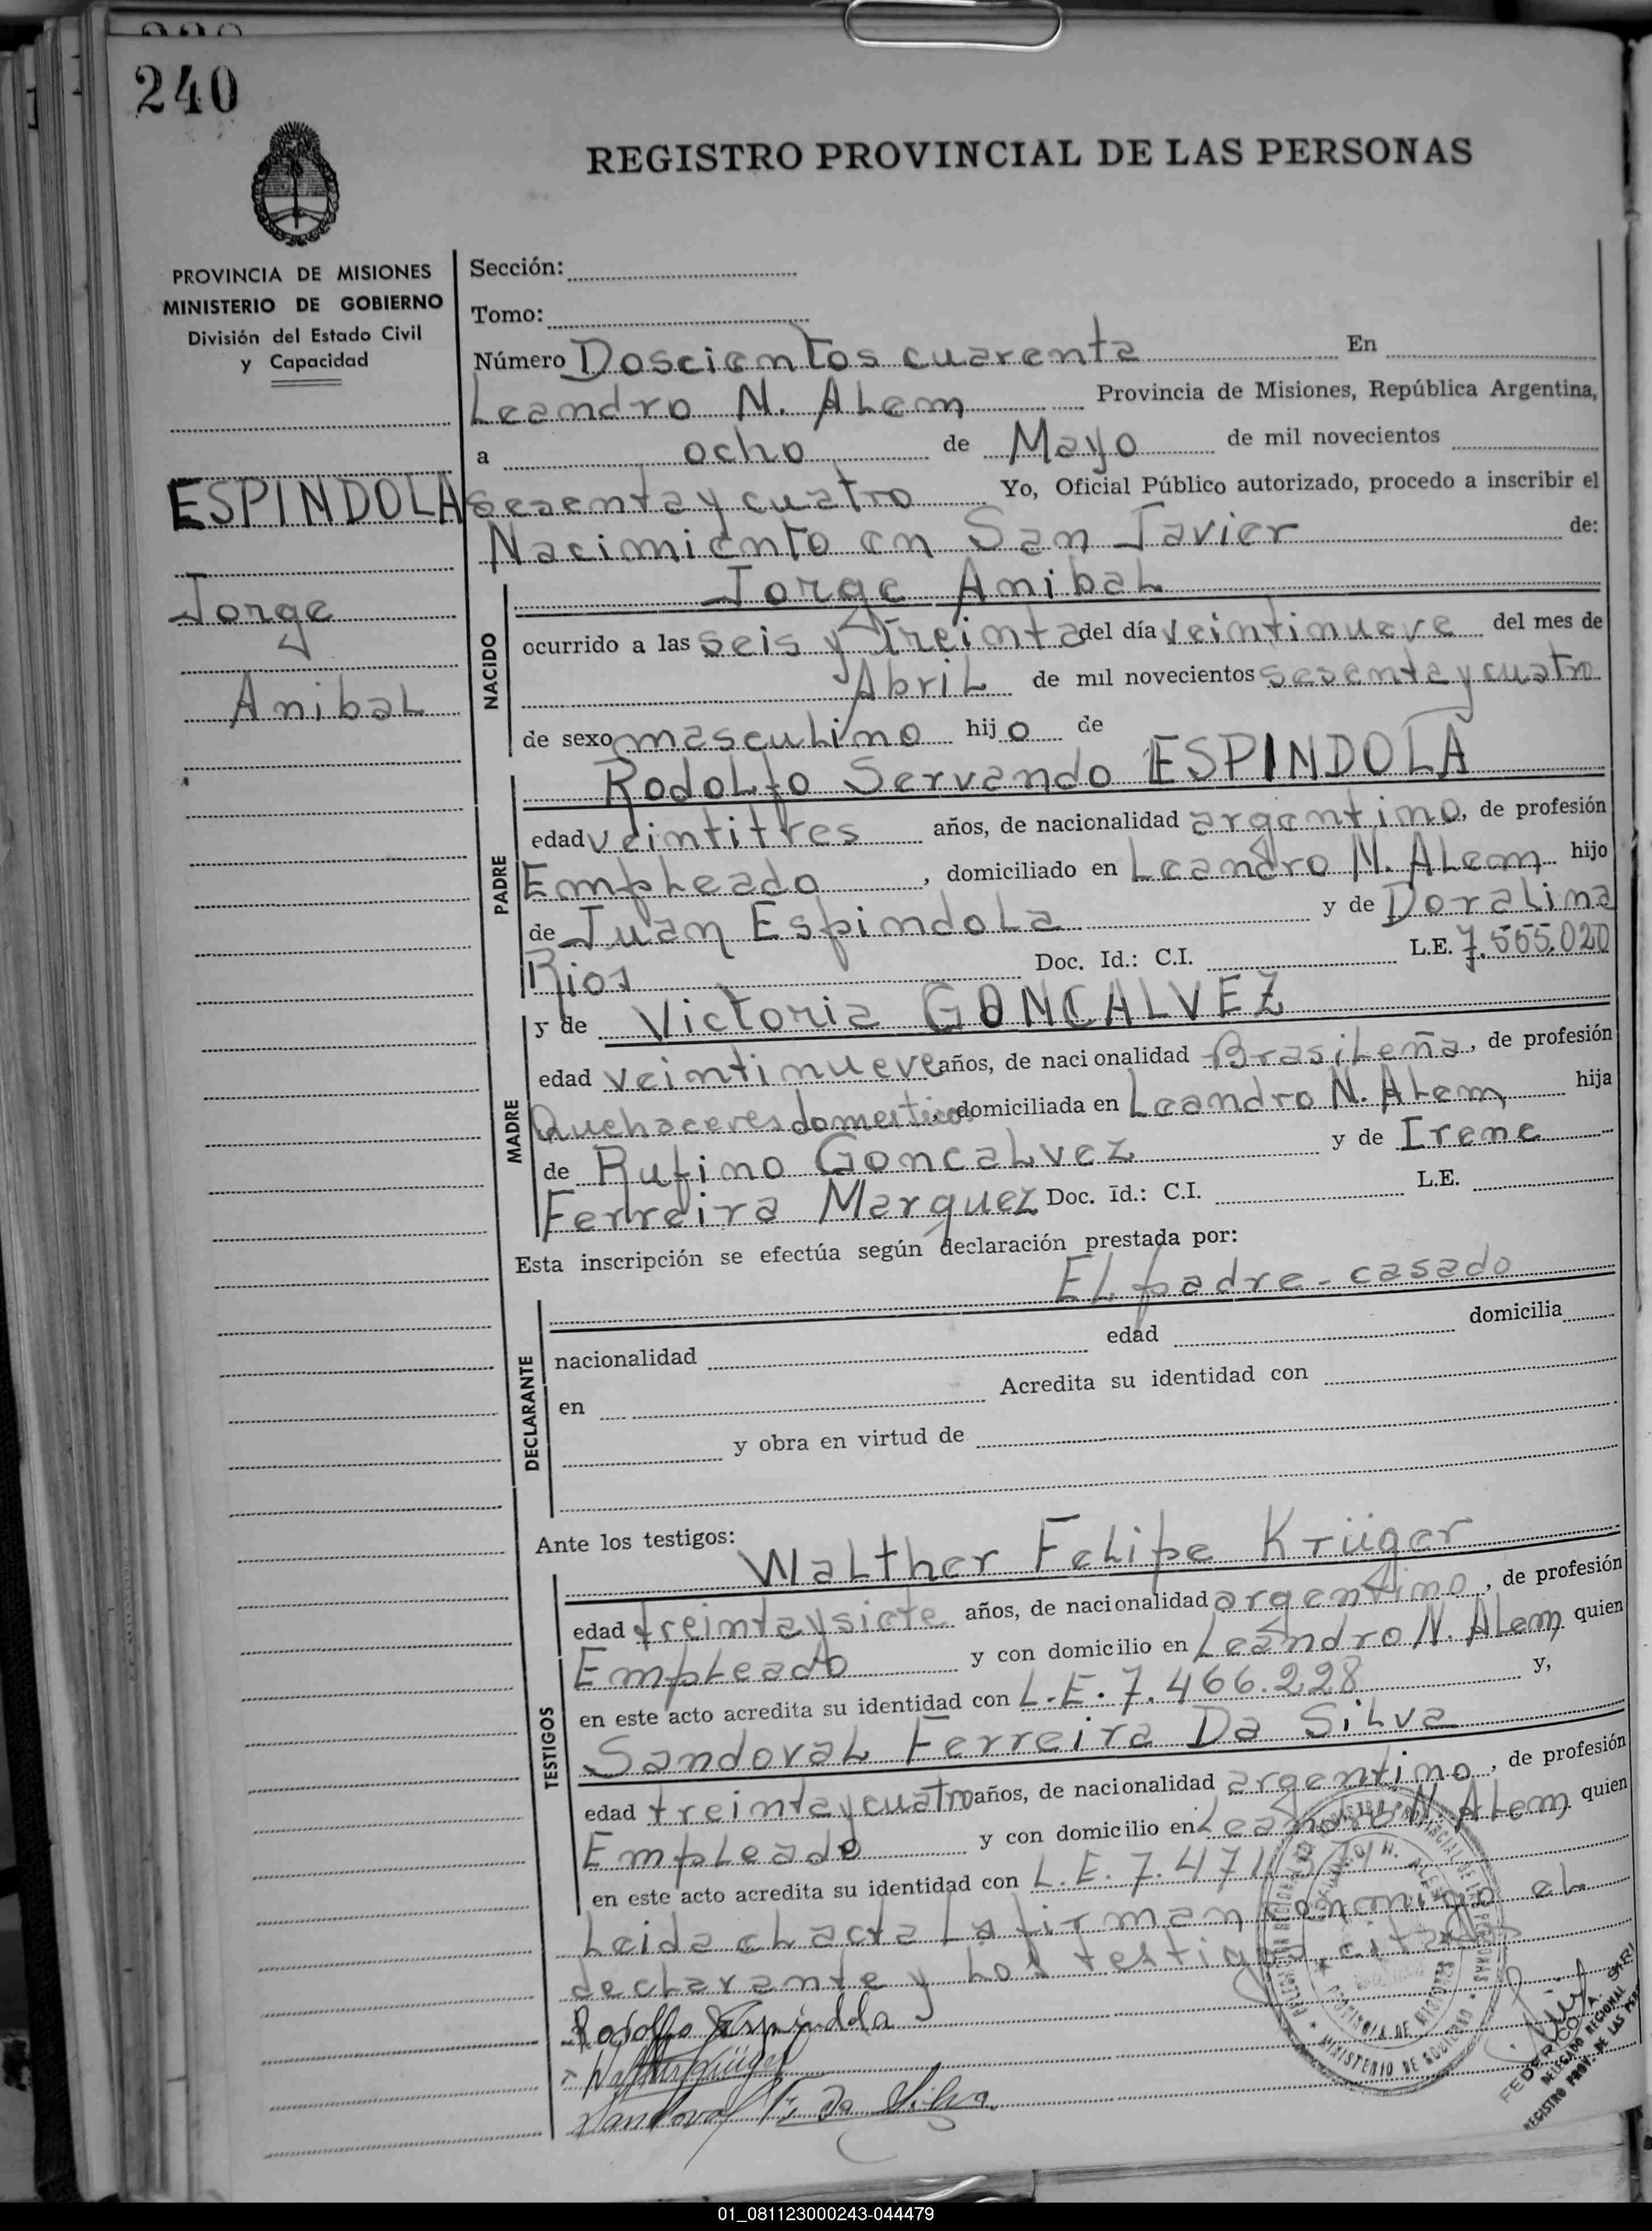 240
REGISTRO PROVINCIAL DE LAS PERSONAS
PROVINCIA DE MISIONES
MINISTERIO DE GOBIERNO
División del Estado Civil
y Capacidad
ESPINDOLA
Jorge
Anibal
Sección:
Tomo:
Número Doscientos cuarenta En
Leandro N. Alem Provincia de Misiones, República Argentina,
a ocho de Mayo de mil novecientos
sesenta y cuatro Yo, Oficial Público autorizado, procedo a inscribir el
Nacimiento en San Javier de:
NACIDO
Jorge Anibal
ocurrido a las seis y treinta del día veintinueve del mes de
Abril de mil novecientos sesenta y cuatro
de sexo masculino hijo de
PADRE
Rodolfo Servando ESPINDOLA
edad veintitres años, de nacionalidad argentino, de profesión
Empleado, domiciliado en Leandro N. Alem hijo
de Juan Espindola y de Doralina
Rios Doc. Id.: C.I. L.E. 7.565.020
MADRE
y de Victoria GONCALVEZ
edad veintinueve años, de nacionalidad Brasileña, de profesión
Quehaceres domesticos, domiciliada en Leandro N. Alem hija
de Rufino Goncalvez y de Irene
Ferreira Marquez Doc. Id.: C.I. L.E.
Esta inscripción se efectúa según declaración prestada por:
DECLARANTE
El padre - casado
nacionalidad edad domicilia
en Acredita su identidad con
y obra en virtud de
Ante los testigos:
TESTIGOS
Walther Felipe Krüger
edad treinta y siete años, de nacionalidad argentino, de profesión
Empleado y con domicilio en Leandro N. Alem quien
en este acto acredita su identidad con L.E. 7.466.228 y,
Sandoval Ferreira Da Silva
edad treinta y cuatro años, de nacionalidad argentino, de profesión
Empleado y con domicilio en Leandro N. Alem quien
en este acto acredita su identidad con L.E. 7.471
Leida el acta la firman conmigo el
declarante y los testigos citados
Rodolfo Espindola
Walther Krüger
Sandoval F. Da Silva
PROVINCIA DE MISIONES
MINISTERIO DE GOBIERNO
FEDERICO A.
DELEGADO REGIONAL
REGISTRO PROV. DE LAS PER
01_081123000243-044479